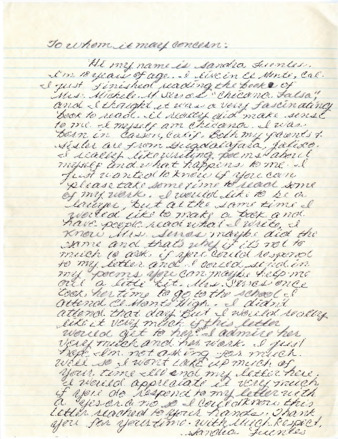 To whom is may concern:
Hi my name is Sandra Fuentes.
I'm 18 years of age. I live in El Monte, Cal.
I just finished reading the book of
Mrs. Michele M Serros "Chicana Falsa",
and I thought it was a very fascinating
book to read. It really did make sense
to me. I myself am chicana. I was
born in Carson, Calif. Both my parents &
sister are from Guadalajara, Jalisco.
I really like writing poems about
myself and what happens to me. I
just wanted to know if you can
please take some time to read some
of my work. I would like to be a
lawyer, but at the same time I
would like to make a book and
have people read what I write, I
know Mrs. Serros maybe did the
same and that's why if it's not to
much to ask if you could respond
to my letter and I would send in
my poems you can maybe help me
out a little bit. Mrs. Serros once
took her time to go to the school I
attend High. I didn't
attend that day but I would really
like it very much if this letter
would get to her. I admire her
very much and her work. I just
hope I'm not asking for much.
Well so I won't take up much of
your time I'll end my letter here.
I would appreciate it very much
if you do respond to my letter with
a yes or no so I can know this
letter reached to your hands. Thank
you for your time. With much respect,
Sandra Fuentes